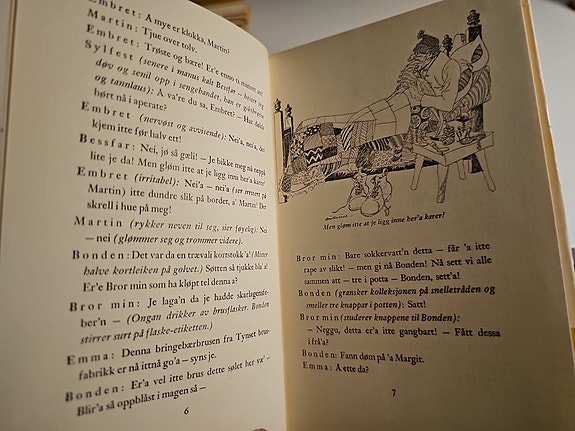 Embret: A mye er klokka, Martin?
Martin: Tjue over tolv.
Embret: Trøste og bære! Er'e enno vi mannn att
Sylfest (senere i manus kalt Bessfar — henser seg
døv og senil opp i sengehandet, han er gikt
og tannlaus): A va're du sa, Embret? — Har du
hørt nå i aperate?
Embret (nervøst og avvisende): Nei'a, nei'a, det
kjem itte før halv ett!
Bessfar: Nei, jø så gæli! — Je bikke meg nå neppi
lite je da! Men gløm itte at je ligg inni her'a karer!
Embret (irritabel): Nei'a — nei'a (ser irritert på
Martin) itte dundre slik på bordet, a' Martin! Det
skrell i hue på meg!
Martin (rykker neven til seg, sier føyelig): Nei
— nei (glømmer seg og trommer videre).
Bonden: Det var da en trævali kortstokk 'a! (Mister
halve kortleiken på golvet.) Søtten så tjukke bla'a!
Er'e Bror min som ha kløpt tel denna a?
Bror min: Je laga'n da je hadde skarlagensfe-
ber'n — (Ongan drikker av brusflasker. Bonden
stirrer surt på flaske-etiketten.)
Emma: Denna bringebærbrusen fra Tynset brus-
fabrikk er nå ittnå go'a — syns je.
Bonden: Er'a vel itte brus dette sølet her va' —
Blir'a så oppblåst i magen så —
6
Men gløm itte at je ligg inne her'a karer!
Bror min: Bare sokkervatt'n detta — får 'a itte
rape av slikt! — men gi nå Bonden! Nå sett vi alle
sammen att — tre i potta — Bonden, sett'a!
Bonden (gransker kolleksjonen på snelletråden og
smeller tre knappar i potten): Satt!
Bror min (studerer knappene til Bonden):
— Neggu, detta er'a itte gangbart! — Fått dessa
i frå'a?
Bonden: Fann døm på 'a Margit.
Emma: A ette da?
7